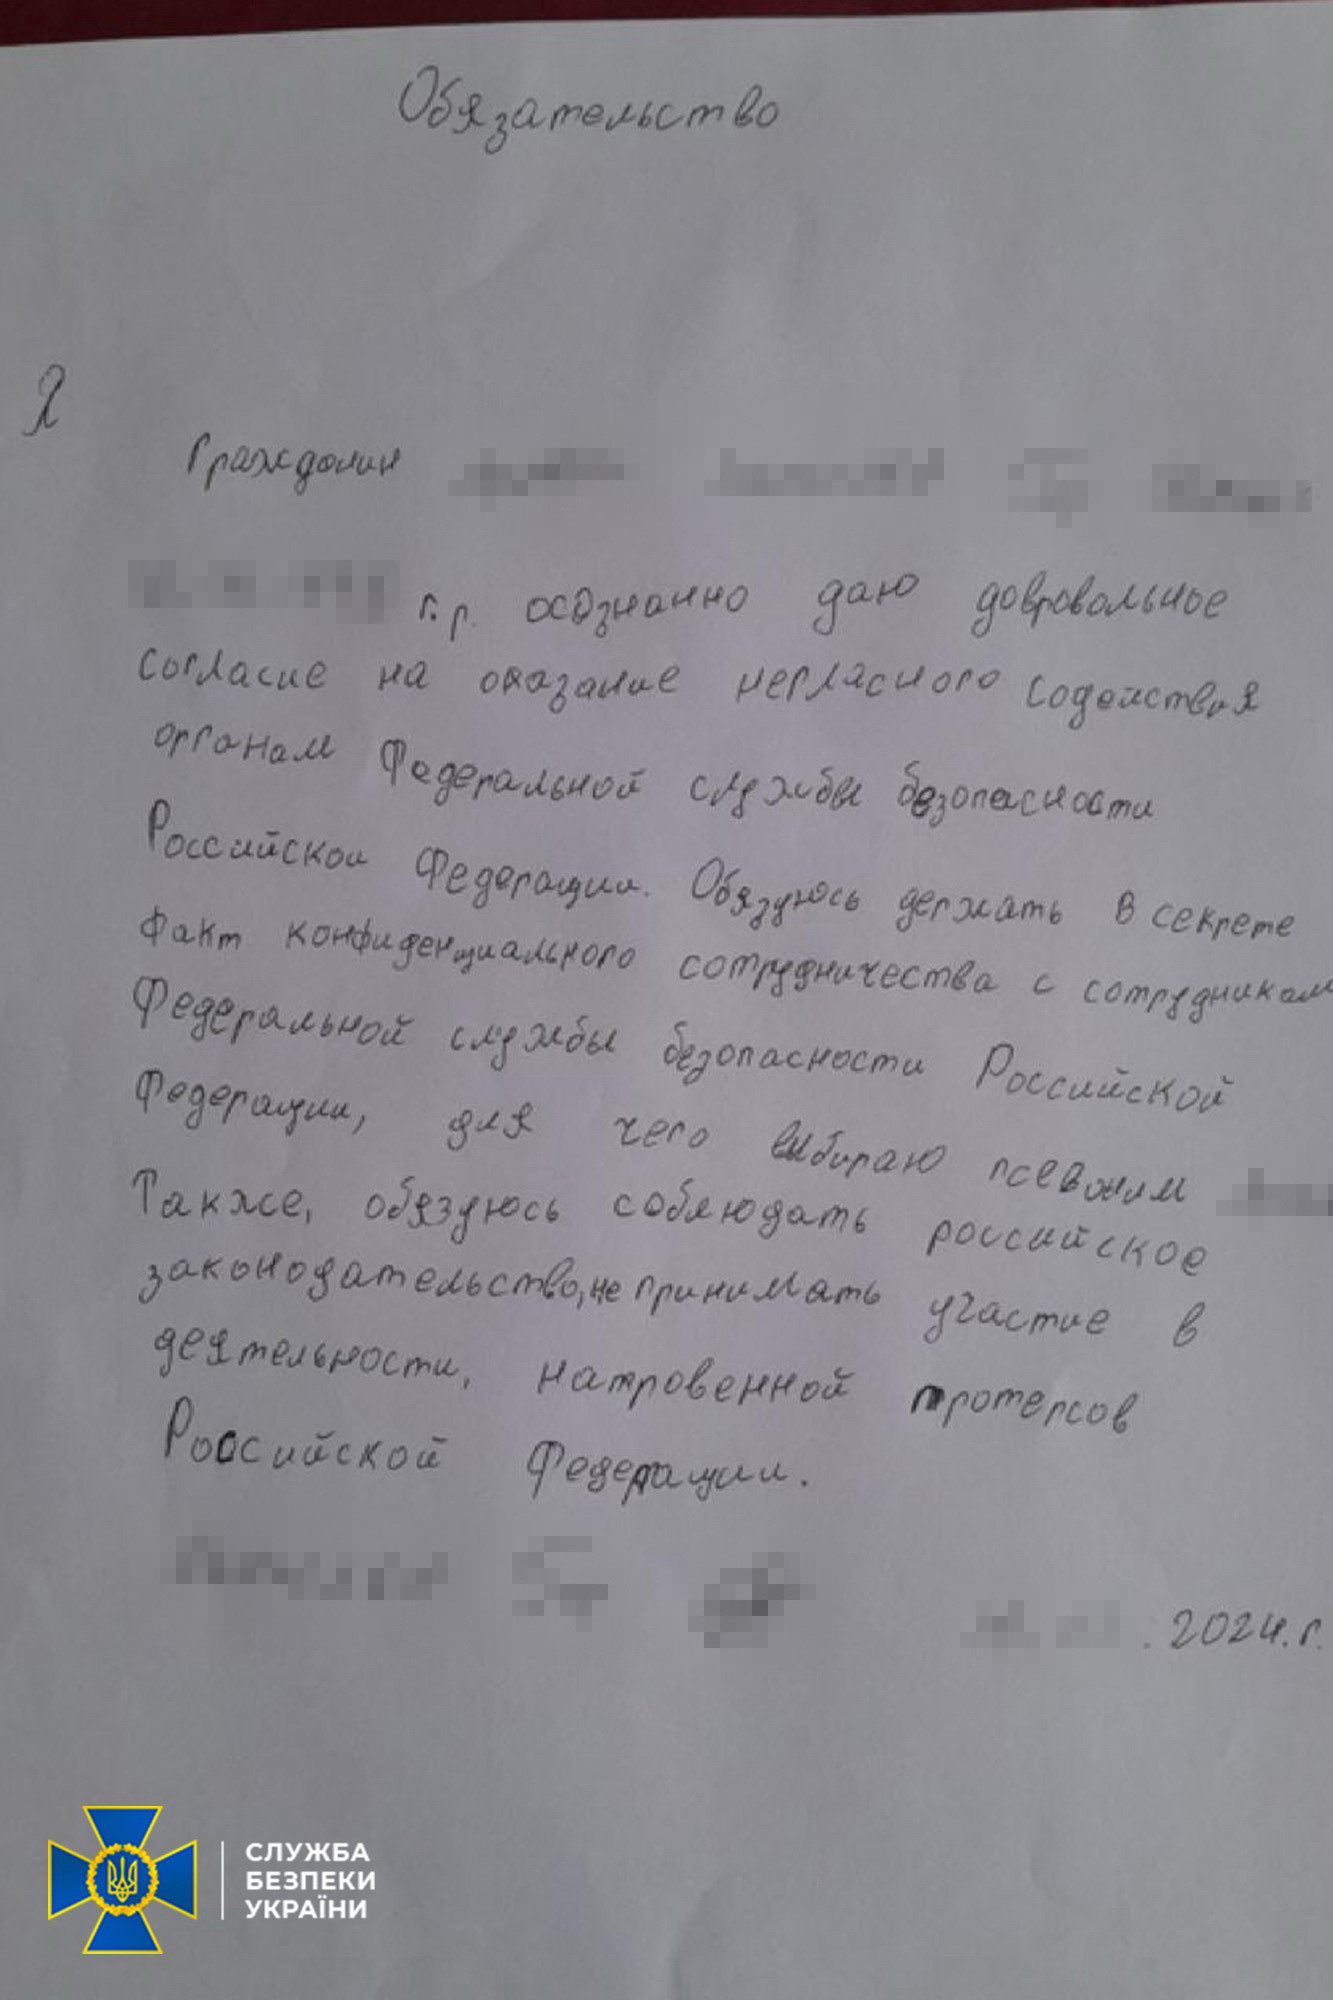 Обязательство
Я
Граждонин
г.р. осознанно даю довровольное
согласие на оказание негласного содействия
органам Федеральной службы безопасности
Российской Федерации. Обязуюсь держать в секрете
факт конфиденциального сотрудничества с сотрудникам
Федеральной службы безопасности Российской
Федерации, для чего выбираю
Также, обязуюсь соблюдать российское
законодательство, не принимать участие в
деятельности, натровенной протерсов
Российской Федерации.
.2024.г.
СЛУЖБА
БЕЗПЕКИ
УКРАЇНИ